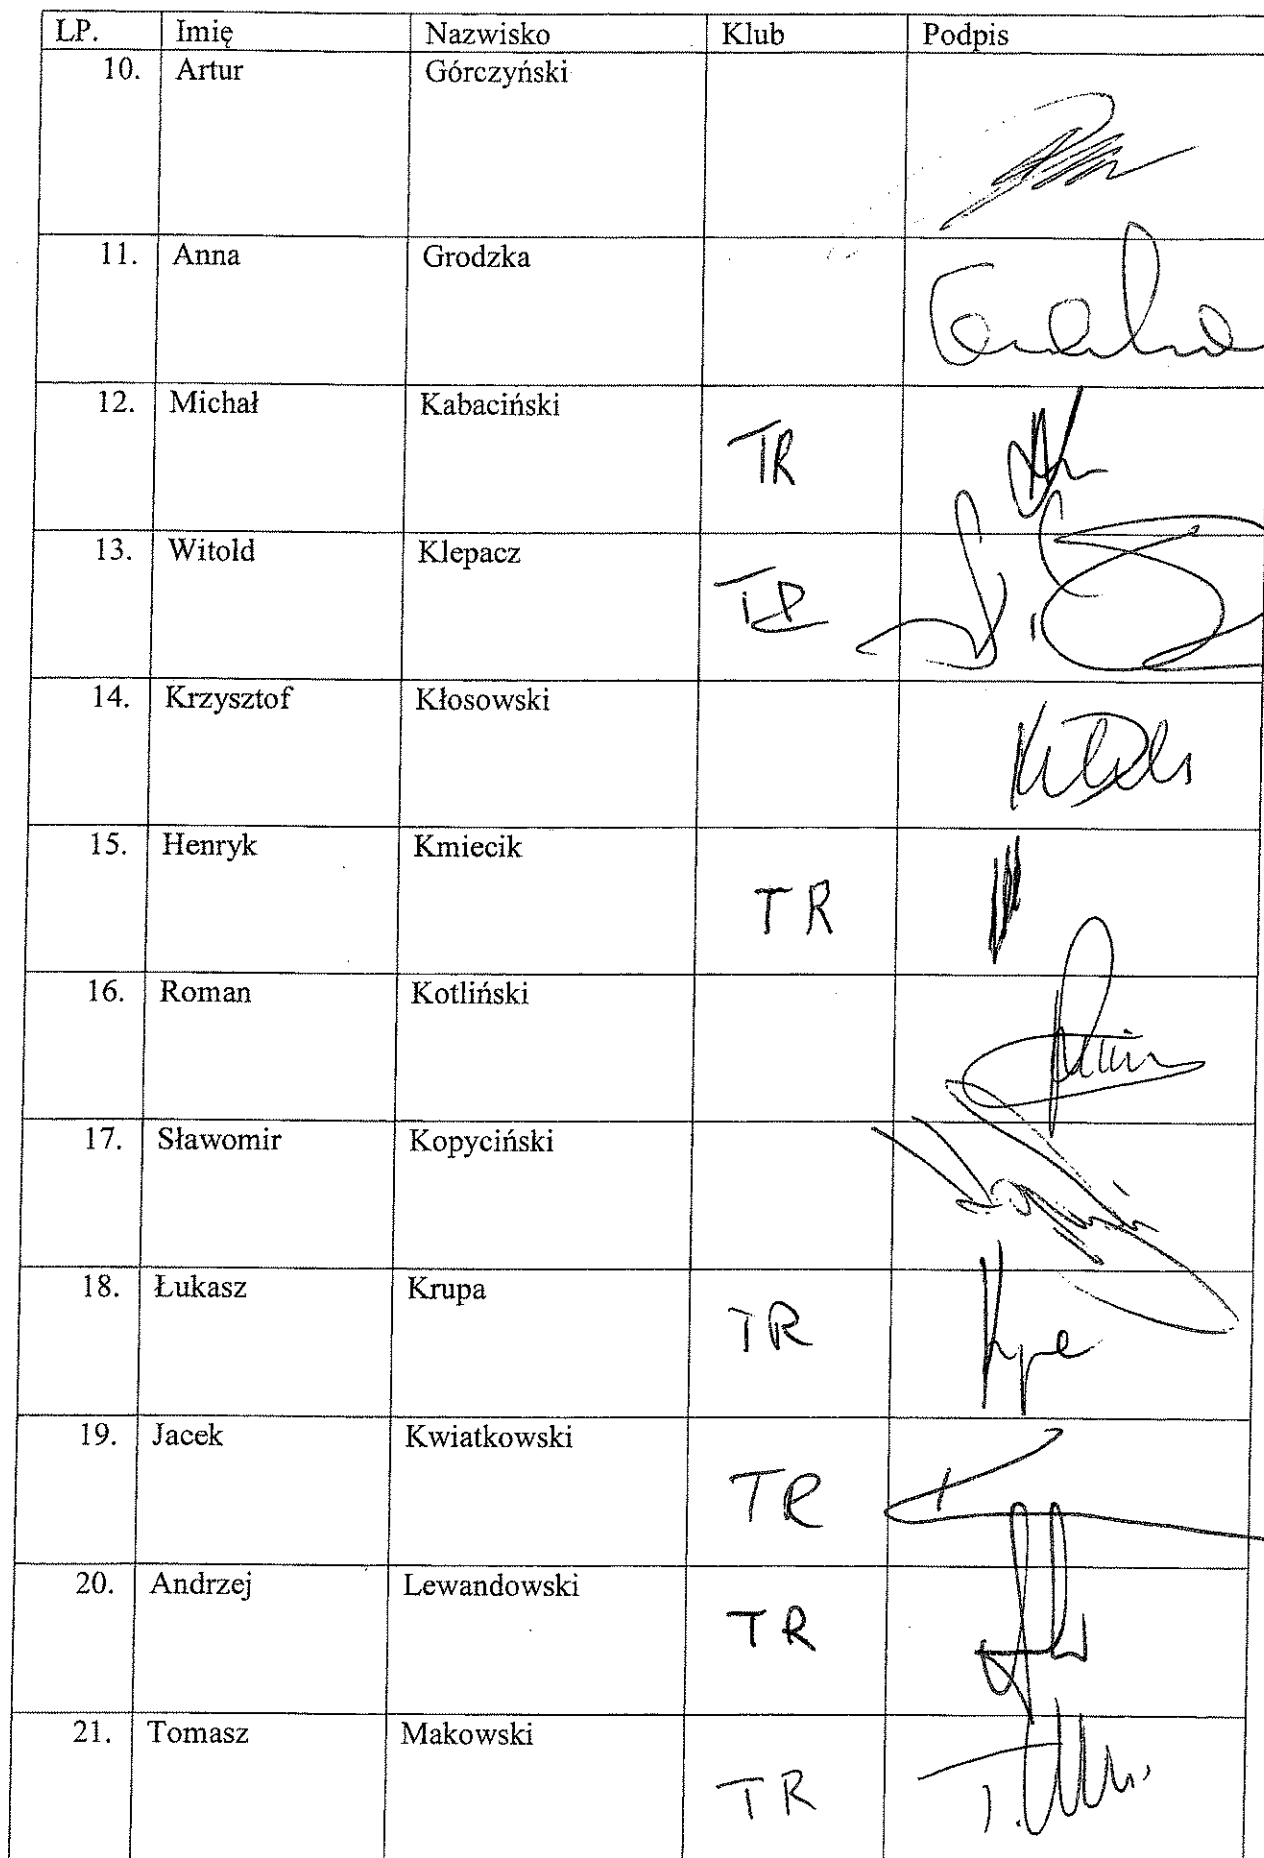 LP. Imię Nazwisko Klub Podpis
10. Artur Górczyński
11. Anna Grodzka
12. Michał Kabaciński TR
13. Witold Klepacz TR
14. Krzysztof Kłosowski
15. Henryk Kmiecik TR
16. Roman Kotliński
17. Sławomir Kopyciński
18. Łukasz Krupa TR
19. Jacek Kwiatkowski TR
20. Andrzej Lewandowski TR
21. Tomasz Makowski TR